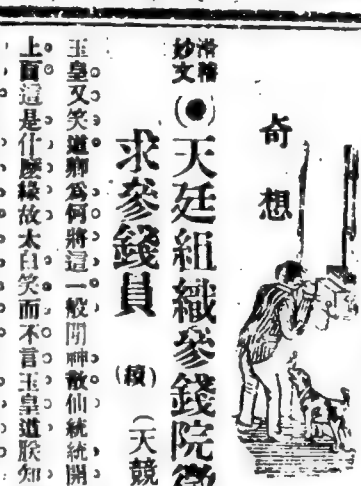 奇想
滑稽妙文
(●)天廷組織參錢院徵
求參錢員
(續)
(天競
玉皇又笑道卿為何將這一般閒神散仙統統開
上面這是什麼緣故太白笑而不言玉皇道朕知